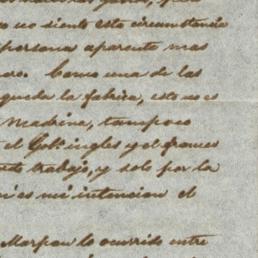 no siento esta circunstancia
persona aparente mas
Como una de las
queda la fabrica, esto no es
Madrina, tampoco
el Gob. ingles y el frances
trabajo, y solo por la
es mi intencion el
Marpan lo ocurrido entre